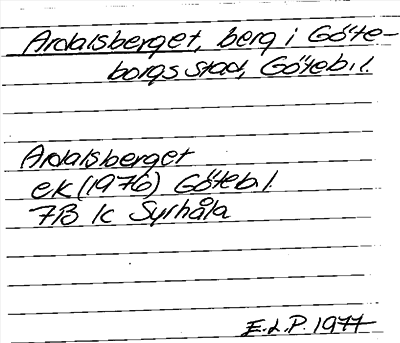 Ardalsberget, berg i Göte-
borgs stad, Göteb. l.
Ardalsberget
ek (1976) Göteb. l.
7B 1c Syrhåla
E.L.P. 1977